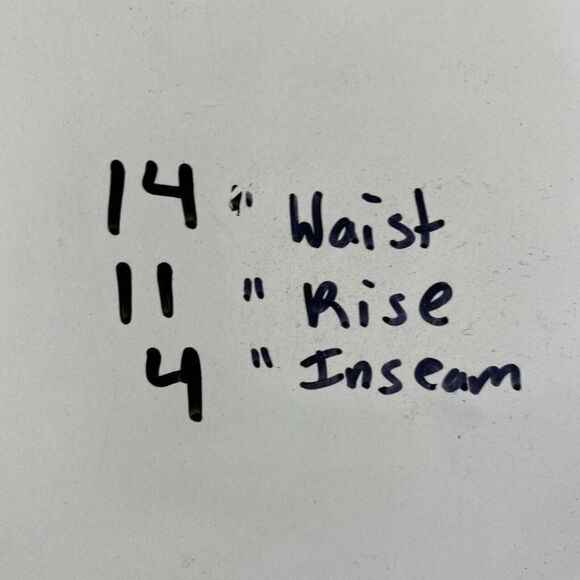 14 " Waist
11 " Rise
4 " Inseam